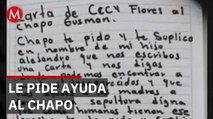 M
Carta de CECY Flores al
chapo Guzman.
Chapo te pido y te suplico
en nombre de mi hijo
alejandro que nos escribas
una carta y nos digas
podemos encontrar a
y que
madres a
sepultura digna
humanos tienen ese
LE PIDE AYUDA
AL CHAPO